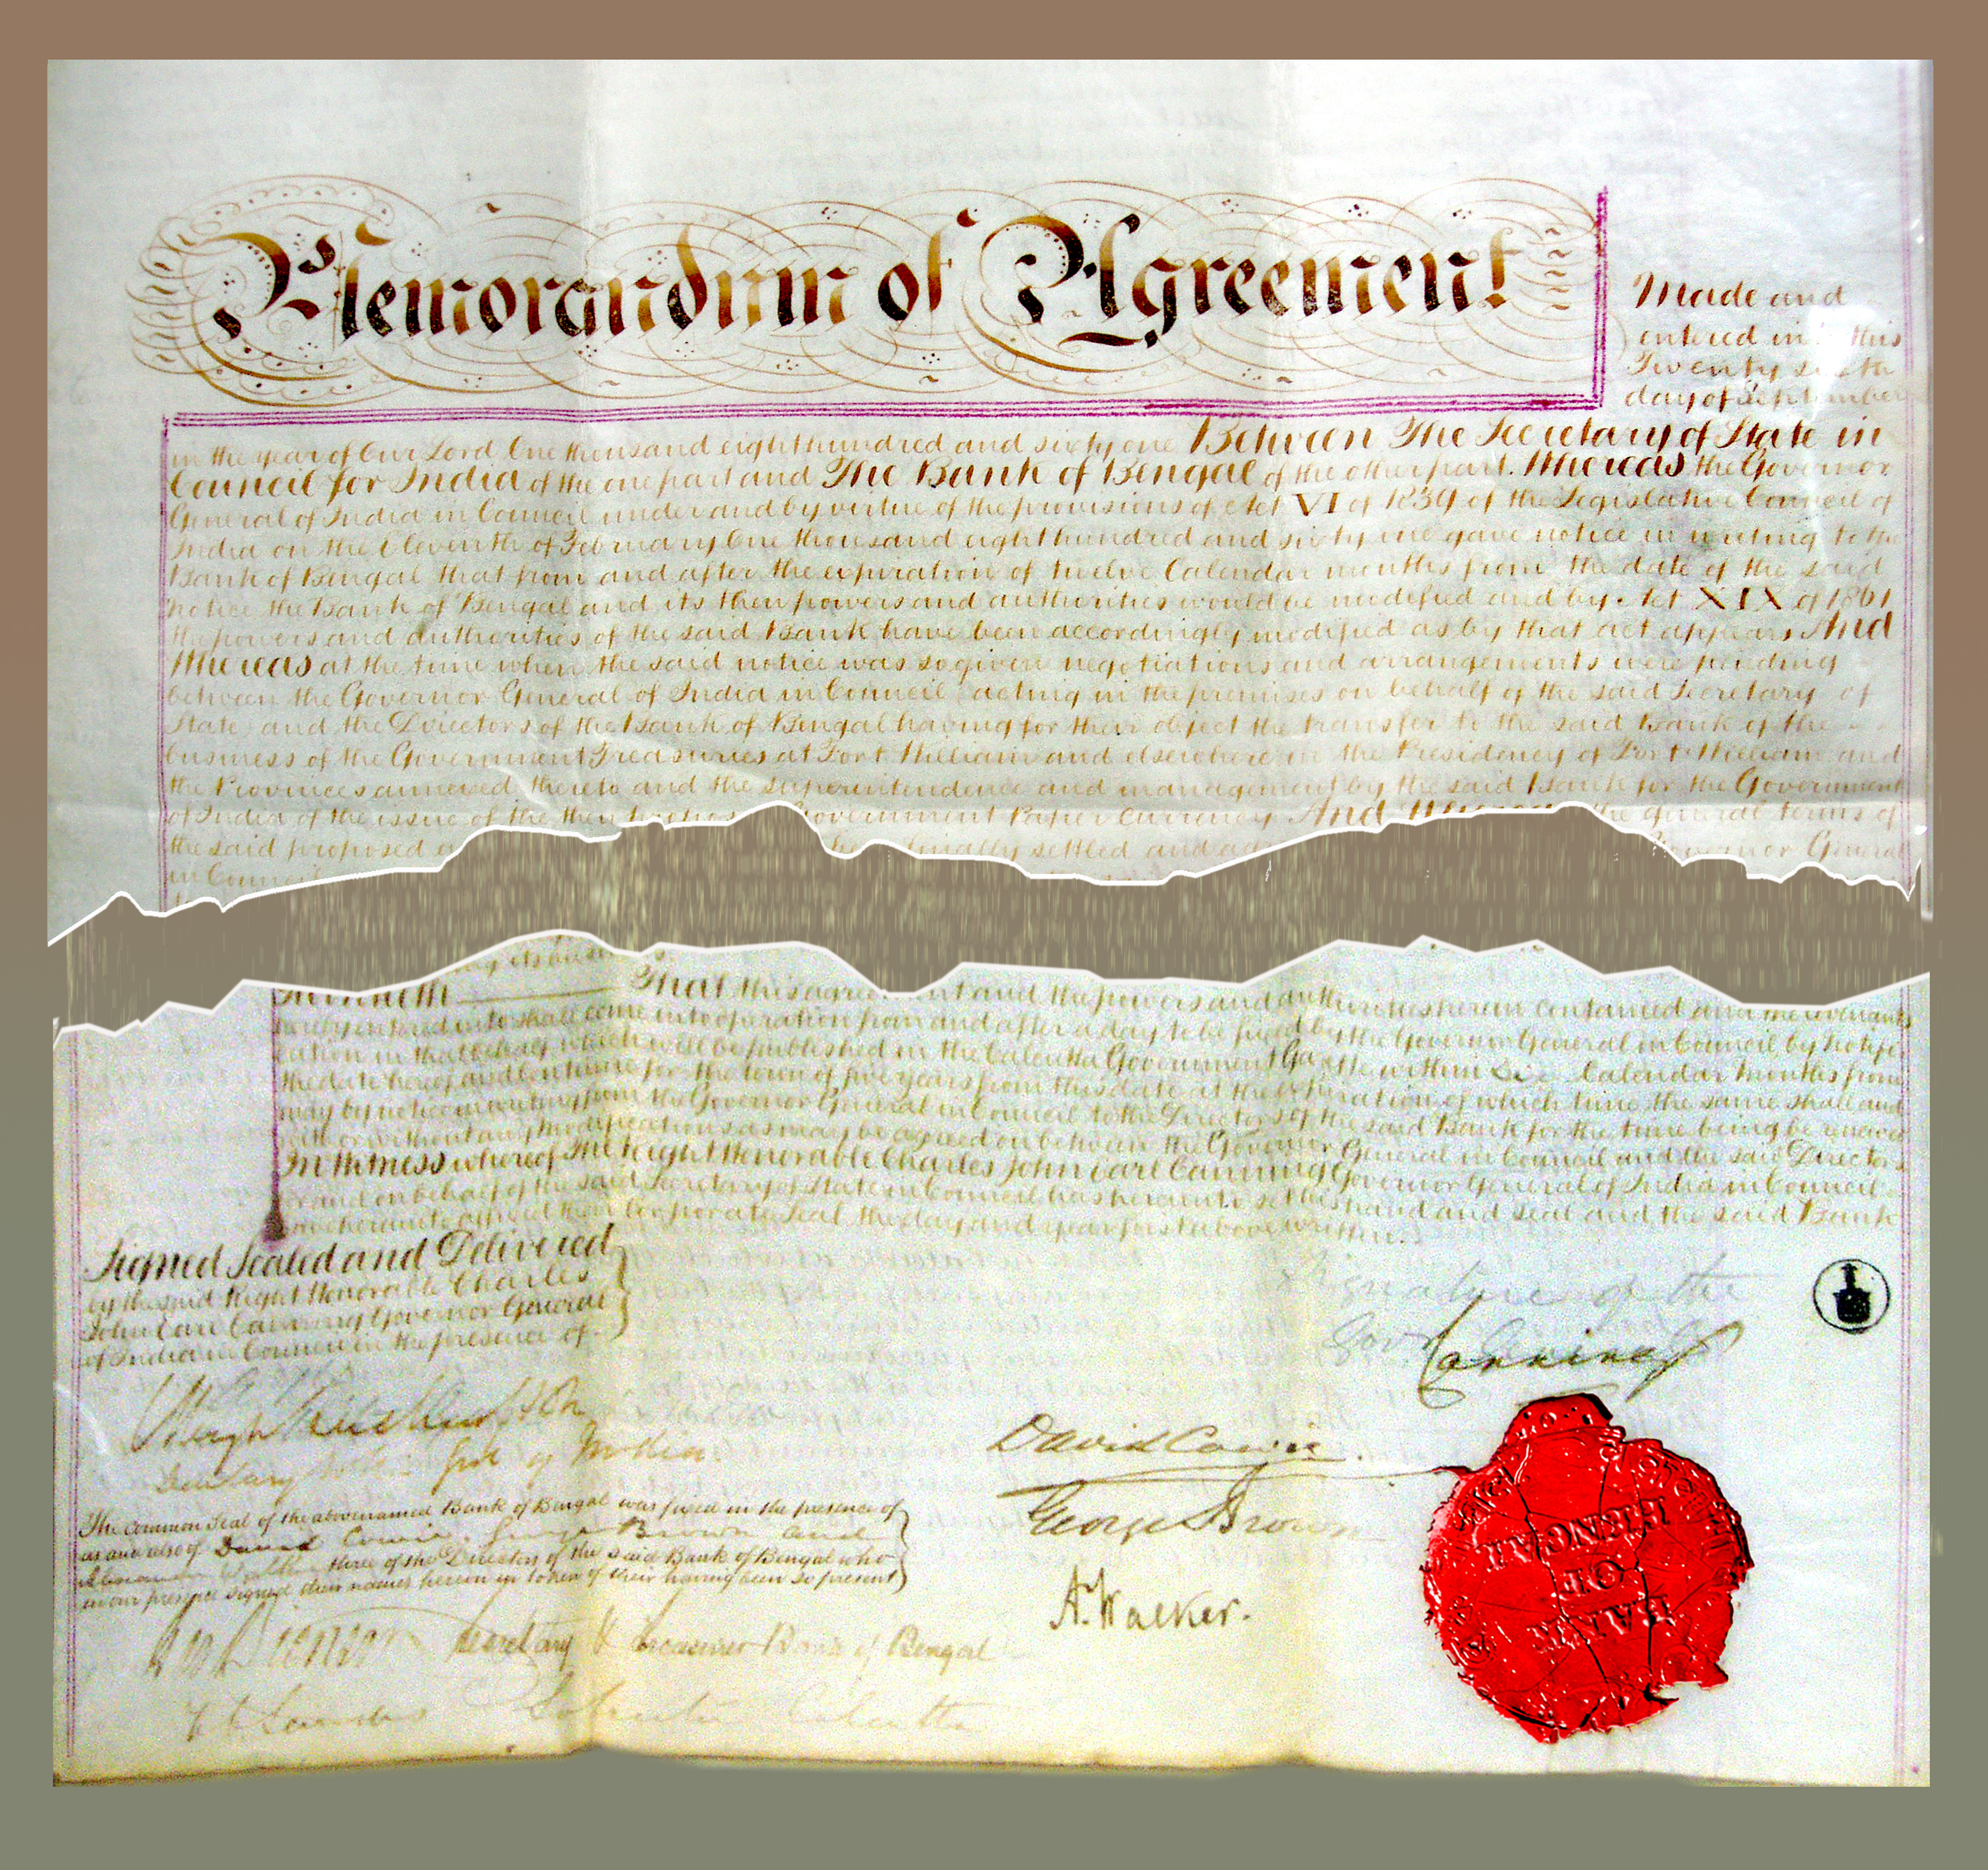 Memorandum of Agreement
Made and
entered in this
Twenty
day of September
in the year of Our Lord One thousand eight hundred and sixty one Between The Secretary of State in
Council for India of the one part and The Bank of Bengal of the other part. Whereas the Governor
General of India in Council under and by virtue of the provisions of Act VI of 1839 of the Legislative Council of
India on the Eleventh of February One thousand eight hundred and sixty one gave notice in writing to the
Bank of Bengal that from and after the expiration of twelve Calendar months from the date of the said
notice the Bank of Bengal and its then powers and authorities would be modified and by Act XIX of 1861
the powers and authorities of the said Bank have been accordingly modified as by that act appears And
Whereas at the time when the said notice was so given negotiations and arrangements were pending
between the Governor General of India in Council acting in the premises on behalf of the said Secretary of
State and the Directors of the Bank of Bengal having for their object the transfer to the said Bank of the
business of the Government Treasuries at Fort William and elsewhere in the Presidency of Fort William and
the Provinces annexed thereto and the superintendence and management by the said Bank for the Government
of India of the issue of the then Government Paper Currency And Whereas the general terms of
the said proposed finally settled and Governor General
in Council
its business
That this agreement and the powers and authorities herein contained and the covenants
hereby entered into shall come into operation from and after a day to be fixed by the Governor General in Council by Notifi
cation in that behalf which will be published in the Calcutta Government Gazette within Six Calendar Months from
the date hereof and continue for the term of five years from this date at the expiration of which time the same shall and
may by notice in writing from the Governor General in Council to the Directors of the said Bank for the time being be renewed
with or without any modifications as may be agreed on between the Governor General in Council and the said Directors
In Witness whereof The Right Honorable Charles John Earl Canning Governor General of India in Council
for and on behalf of the said Secretary of State in Council has hereunto set his hand and seal and the said Bank
have hereunto affixed their Corporate Seal the day and year first above written.
Signed Sealed and Delivered
by the said Right Honorable Charles
John Earl Canning Governor General
of India in Council in the presence of
Signature of the
Canning
Secretary Govt of India.
David Cowie.
George Brown
A. Walker.
The Common Seal of the abovenamed Bank of Bengal was fixed in the presence of
as and also of David Cowie, George Brown and
Alexander Walker three of the Directors of the said Bank of Bengal who
in our presence signed their names herein in token of their having been so present
Secretary & Treasurer Bank of Bengal
Calcutta
BANK
OF
BENGAL